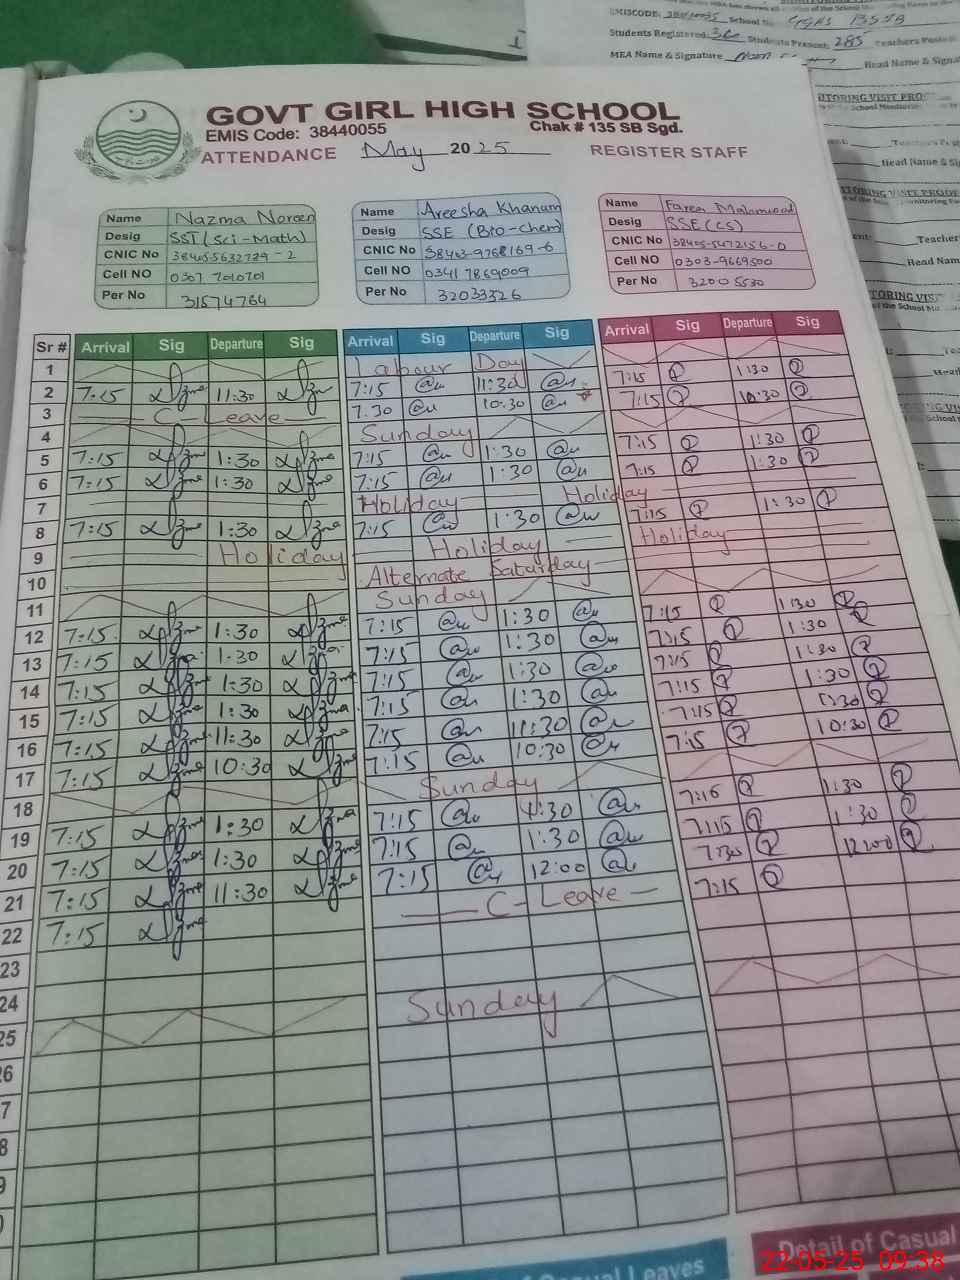 EMISCODE: 38440055 School
Students Registered: Students Present: 285 Teachers Posted:
MEA Name & Signature Head Name & Signa
GOVT GIRL HIGH SCHOOL
EMIS Code: 38440055 Chak # 135 SB Sgd.
ATTENDANCE May 2025 REGISTER STAFF
Name Nazma Noreen
Desig SST (Sci-Math)
CNIC No 384055632729-2
Cell NO 0307 7010701
Per No 31574764
Name Areesha Khanum
Desig SSE (Bio-Chem)
CNIC No 38403-9768169-6
Cell NO 0341 7869009
Per No 32033326
Name Farea Mahmood
Desig SSE (CS)
CNIC No 38405-5472156-0
Cell NO 0303-9669500
Per No 32005530
Sr # Arrival Sig Departure Sig Arrival Sig Departure Sig Arrival Sig Departure Sig
1 Labour Day
2 7:15 11:30 7:15 11:30 7:15 1130
3 C-Leave 7.30 10:30 7:15 10:30
4 Sunday
5 7:15 1:30 7:15 1:30 7:15 1:30
6 7:15 1:30 7:15 1:30 7:15 1:30
7 Holiday Holiday
8 7:15 1:30 7:15 1:30 7:15 1:30
9 Holiday Holiday Holiday
10 Alternate Saturday
11 Sunday
12 7:15 1:30 7:15 1:30 7:15 1:30
13 7:15 1.30 7:15 1:30 7:15 1:30
14 7:15 1:30 7:15 1:30 7:15 1:30
15 7:15 1:30 7:15 1:30 7:15 1:30
16 7:15 11:30 7:15 11:30 7:15 1:30
17 7:15 10:30 7:15 10:30 7:15 10:30
18 Sunday
19 7:15 1:30 7:15 1:30 7:15 1:30
20 7:15 1:30 7:15 1:30 7:15 1:30
21 7:15 11:30 7:15 12:00 7:30 12:00
22 7:15 C-Leave 7:15
23
24
25 Sunday
26
7
8
9
0
Casual Leaves
Detail of Casual
22-05-25 09:38